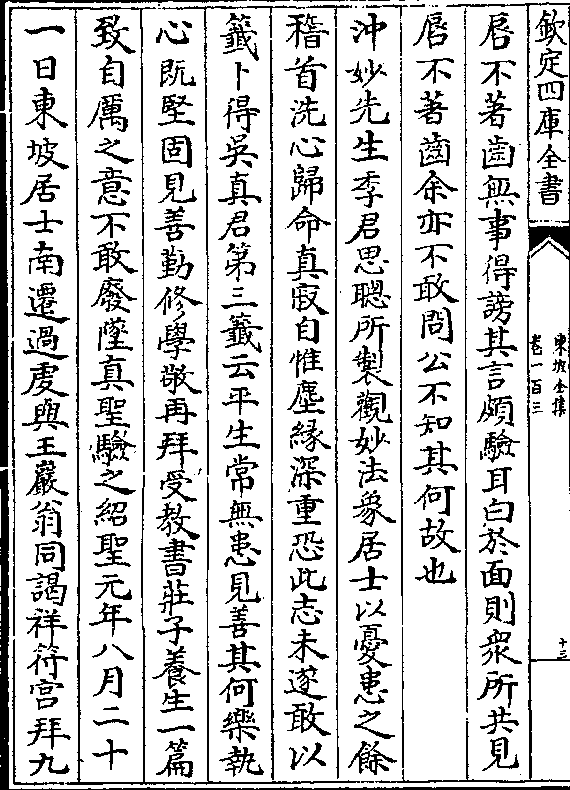 欽定四庫全書
東坡全集
卷一百三
十三
唇不著齒無事得謗其言頗驗耳白於面則衆所共見
唇不著齒余亦不敢問公不知其何故也
沖妙先生李君思聰所製觀妙法象居士以憂患之餘
稽首洗心歸命真寂自惟塵緣深重恐此志未遂敢以
籤卜得吳真君第三籤云平生常無患見善其何樂執
心既堅固見善勤修學敬再拜受教書莊子養生一篇
致自厲之意不敢廢墜真聖驗之紹聖元年八月二十
一日東坡居士南遷過虔與王巖翁同謁祥符宫拜九